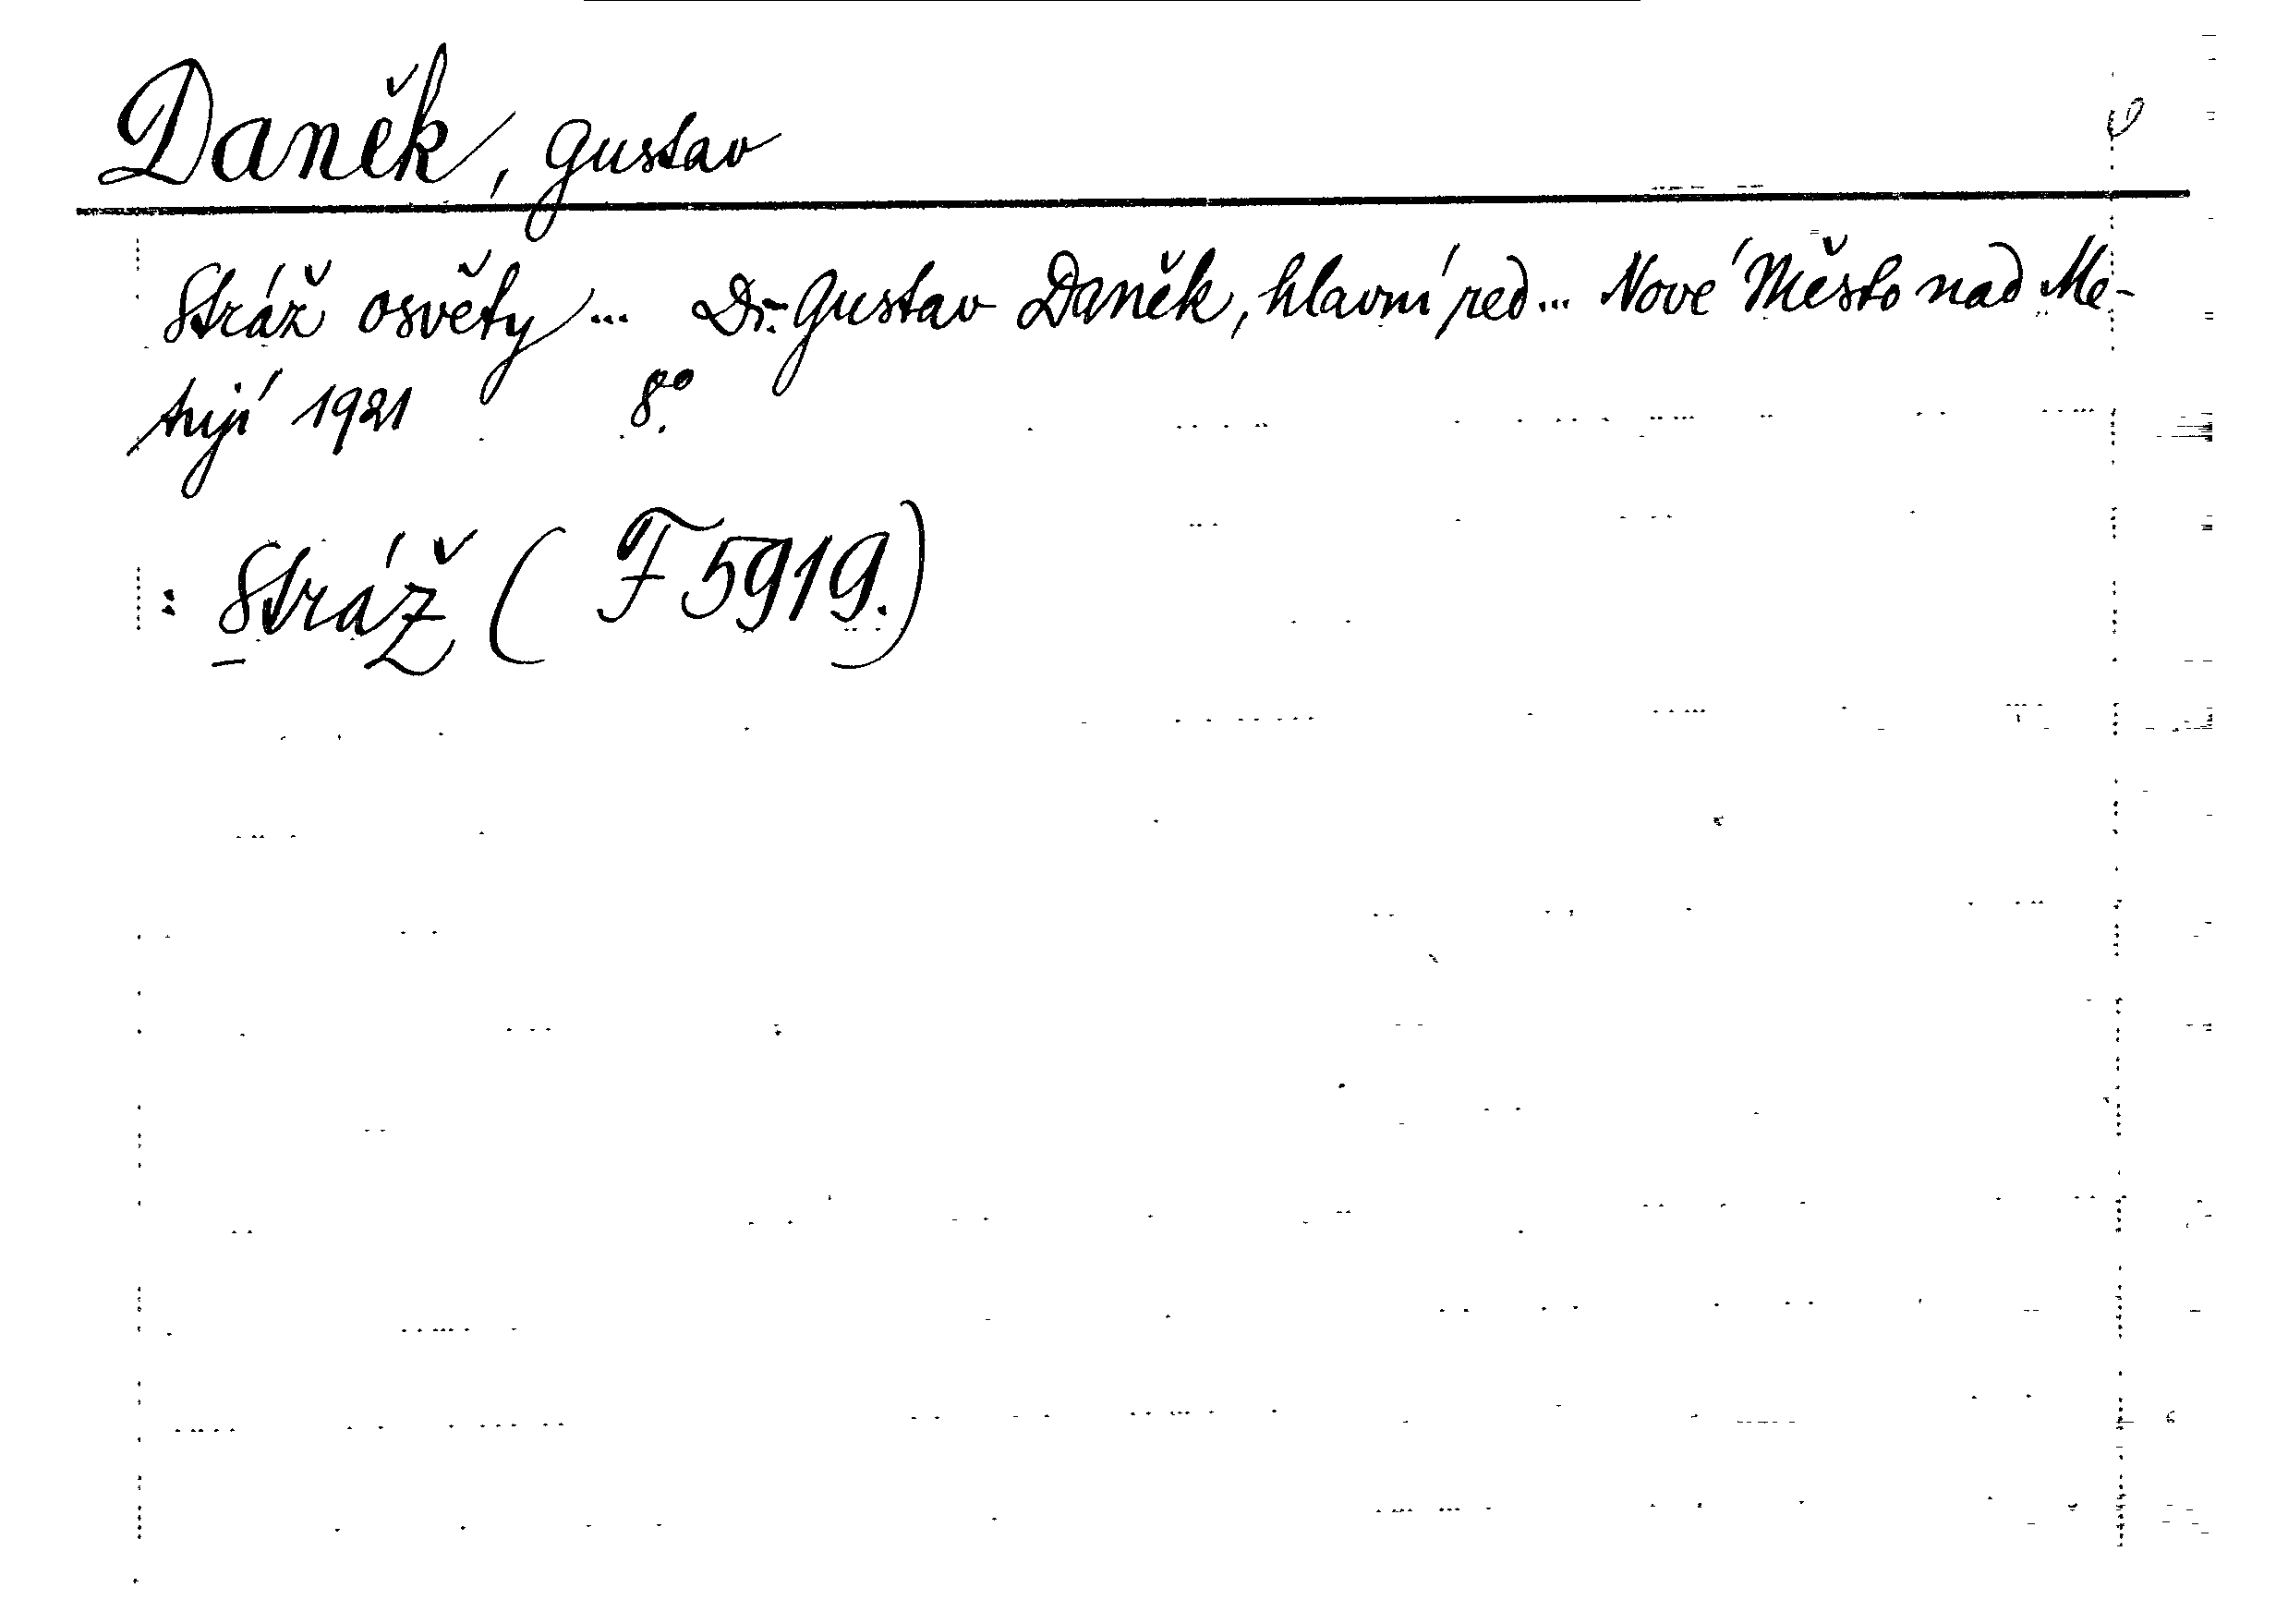 Daněk, Gustav
Stráž osvěty... Dr. Gustav Daněk, hlavní red... Nové Město nad Me-
tují 1921 8°.
: Stráž ( F 5919.)